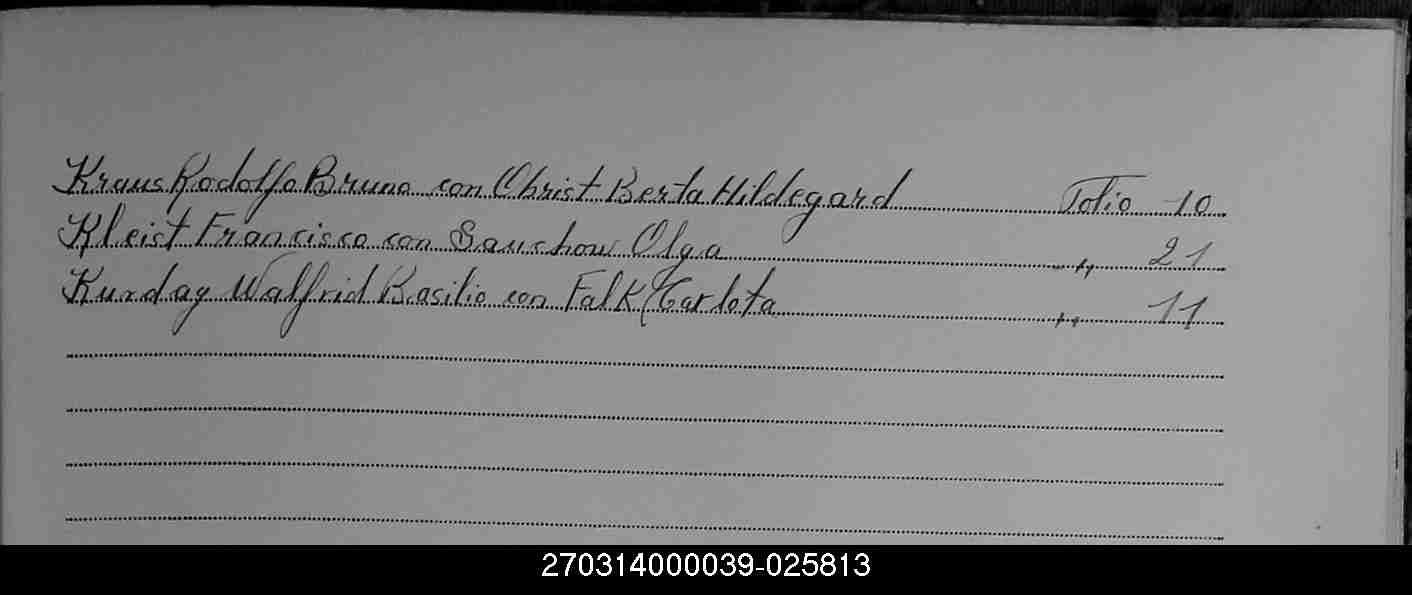 Kraus Rodolfo Bruno con Christ Berta Hildegard Folio 10
Kleist Francisco con Sauchow Olga " 21
Kurday Walfrid Basilio con Falk Carlota " 11
270314000039-025813